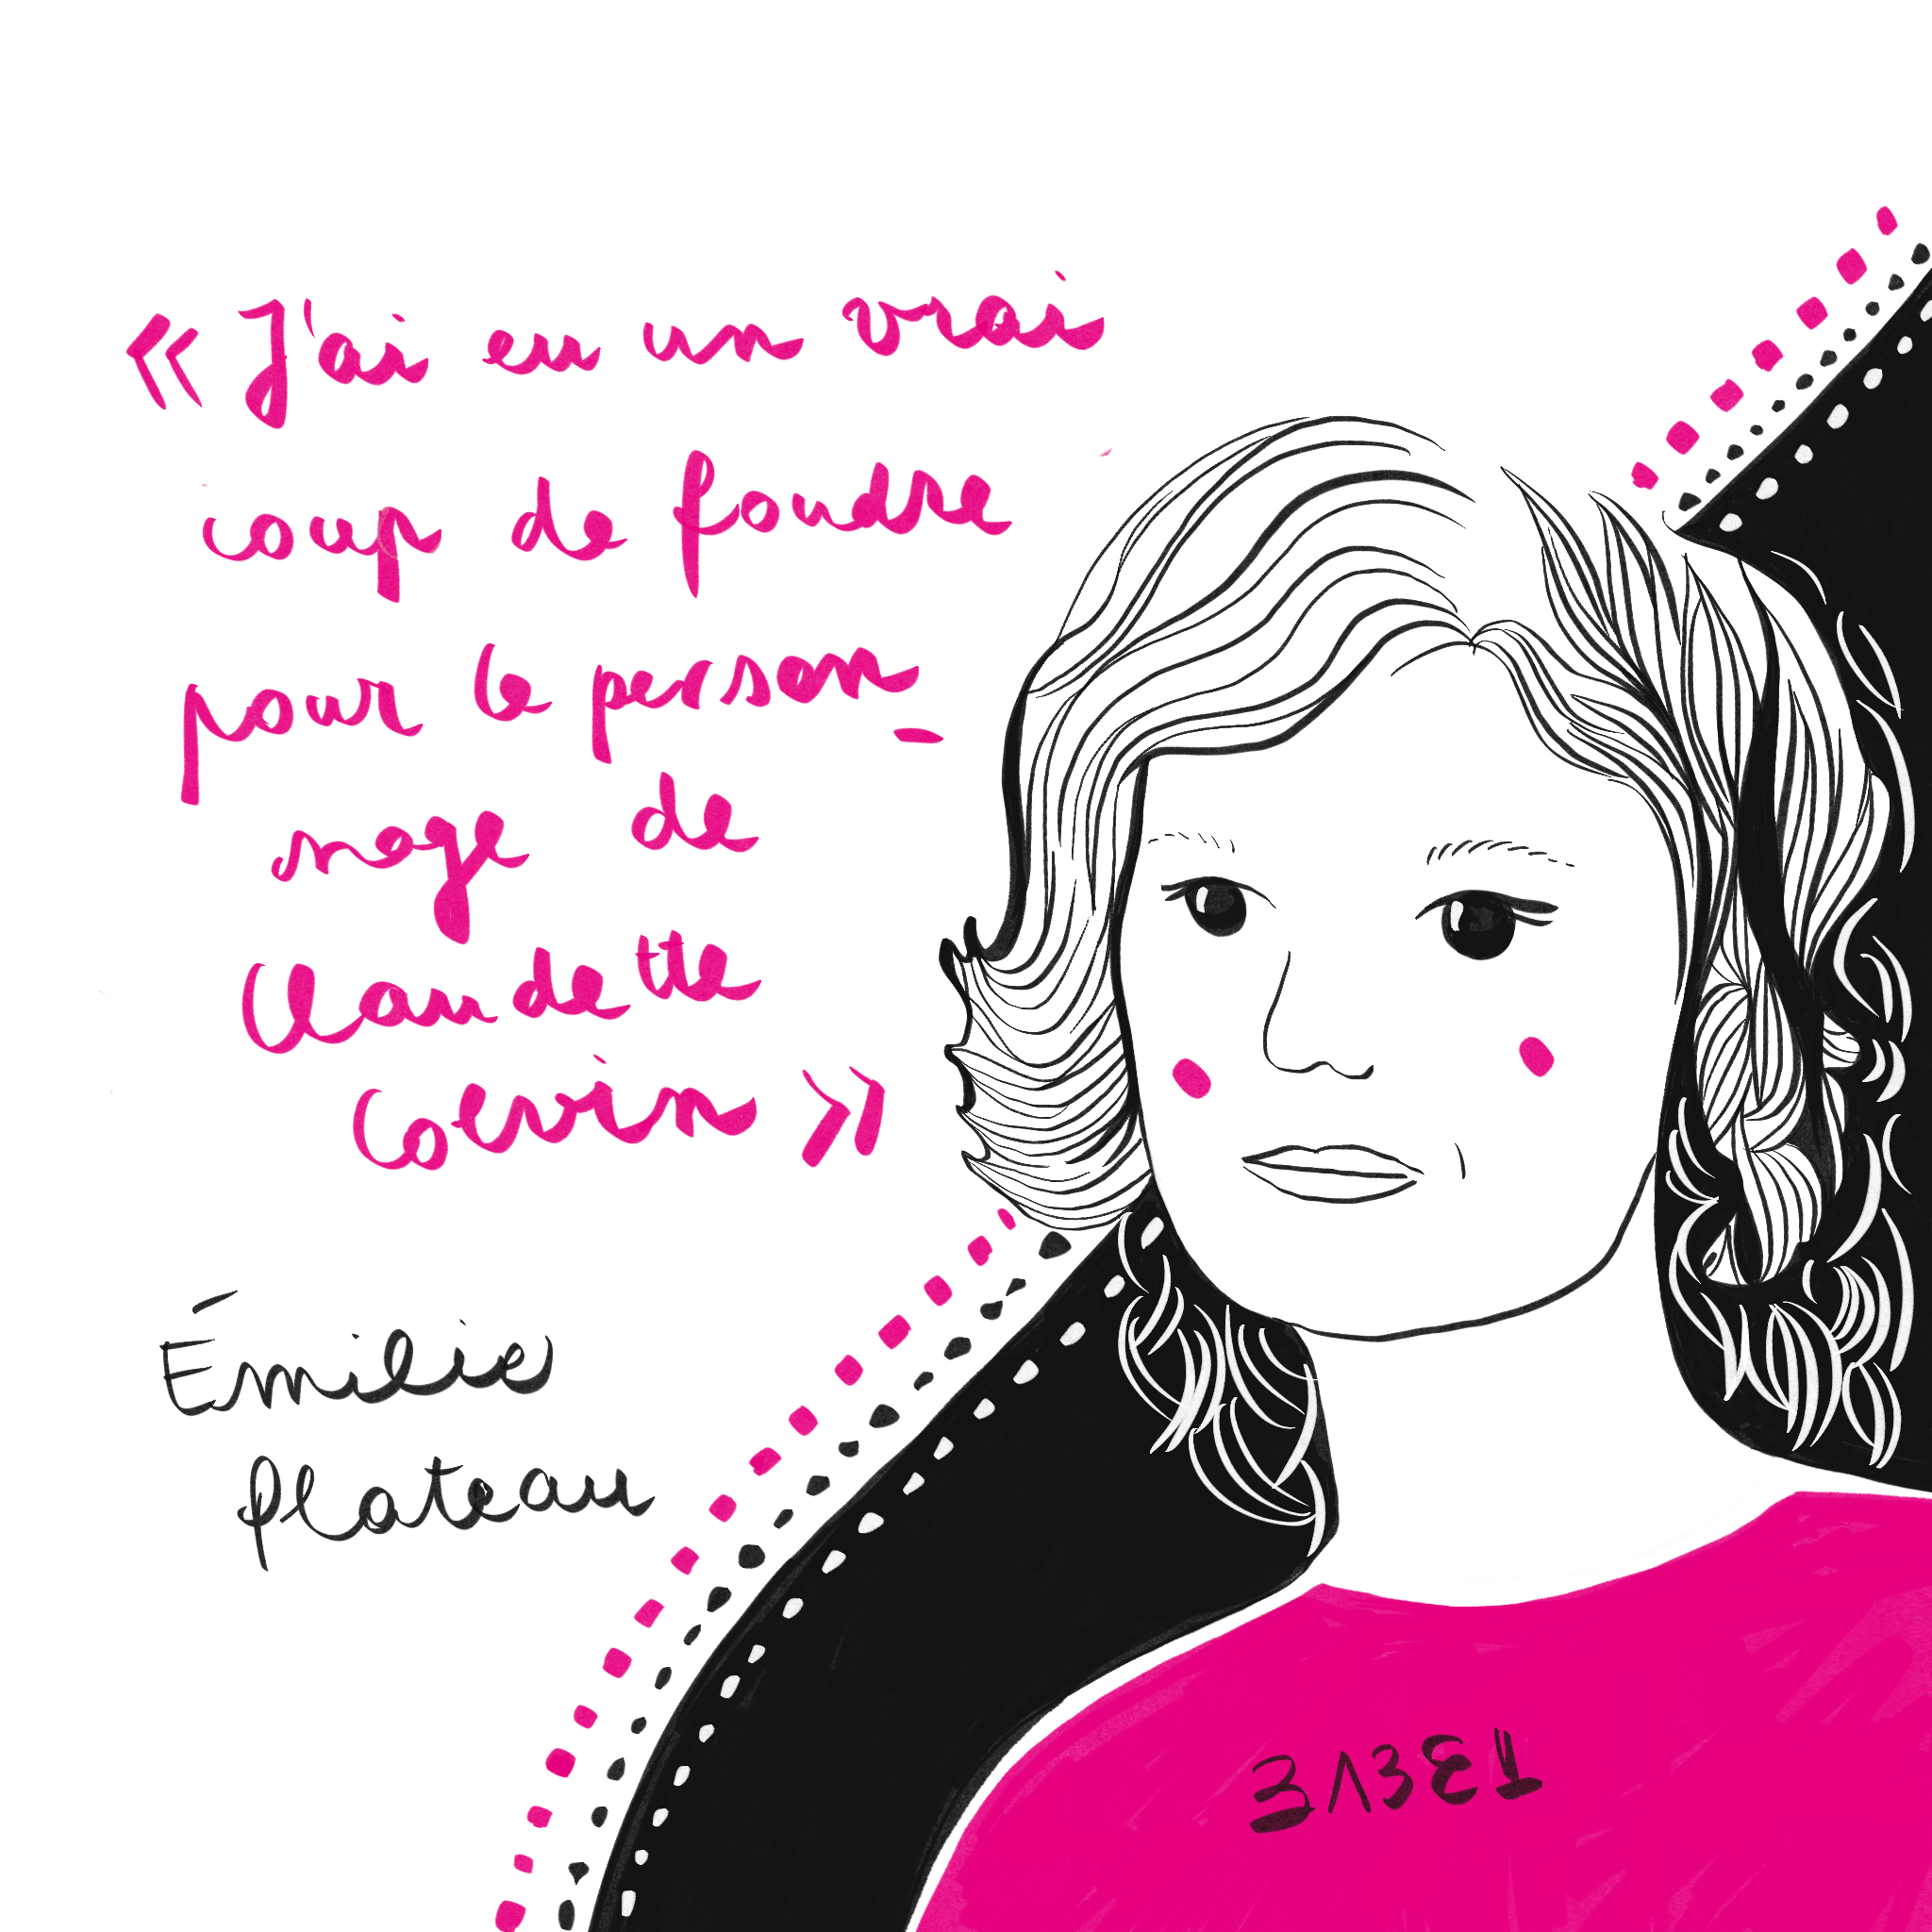 « J'ai eu un vrai
coup de foudre
pour le person-
nage de
Claudette
Colvin »
Émilie
Plateau